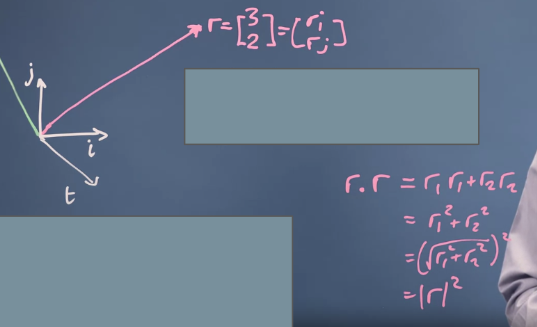 r = [3 2] = [ri rj]
j
i
t
r.r = r₁r₁+r₂r₂
= r₁²+r₂²
=(√r₁²+r₂²)²
=|r|²